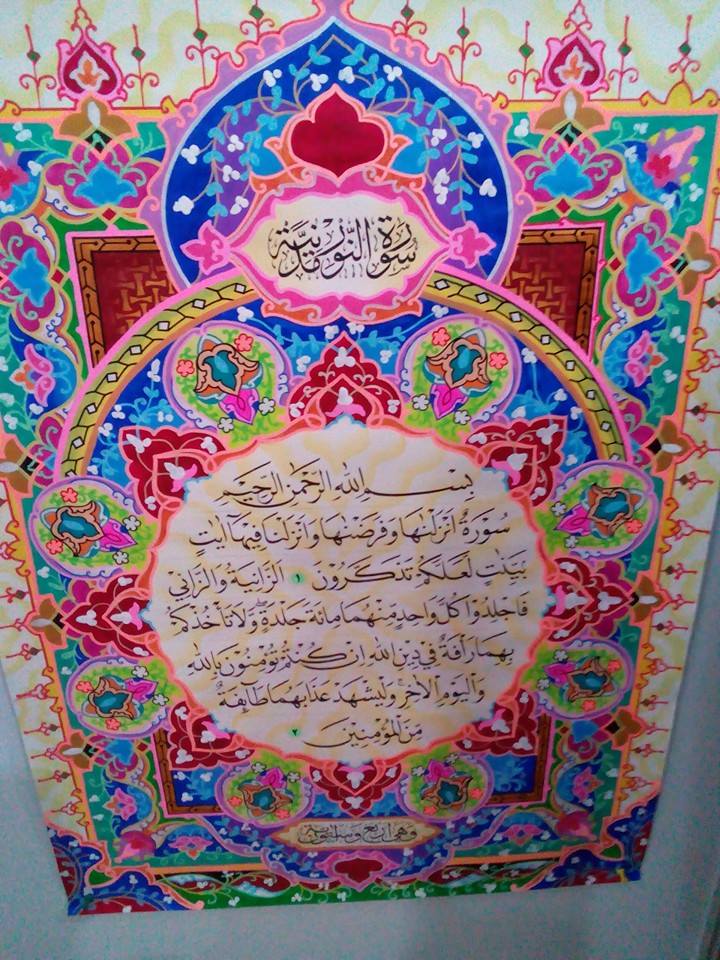 سورة النور مدنية
بِسْمِ اللهِ الرَّحْمٰنِ الرَّحِيْمِ
سُوْرَةٌ اَنْزَلْنٰهَا وَفَرَضْنٰهَا وَاَنْزَلْنَا فِيْهَآ اٰيٰتٍ
بَيِّنٰتٍ لَعَلَّكُمْ تَذَكَّرُوْنَ ١ اَلزَّانِيَةُ وَالزَّانِيْ
فَاجْلِدُوْا كُلَّ وَاحِدٍ مِنْهُمَا مِائَةَ جَلْدَةٍ وَّلَا تَأْخُذْكُمْ
بِهِمَا رَأْفَةٌ فِيْ دِيْنِ اللهِ اِنْ كُنْتُمْ تُؤْمِنُوْنَ بِاللهِ
وَالْيَوْمِ الْاٰخِرِ وَلْيَشْهَدْ عَذَابَهُمَا طَآئِفَةٌ
مِنَ الْمُؤْمِنِيْنَ ٢
وهي اربع وستون اية